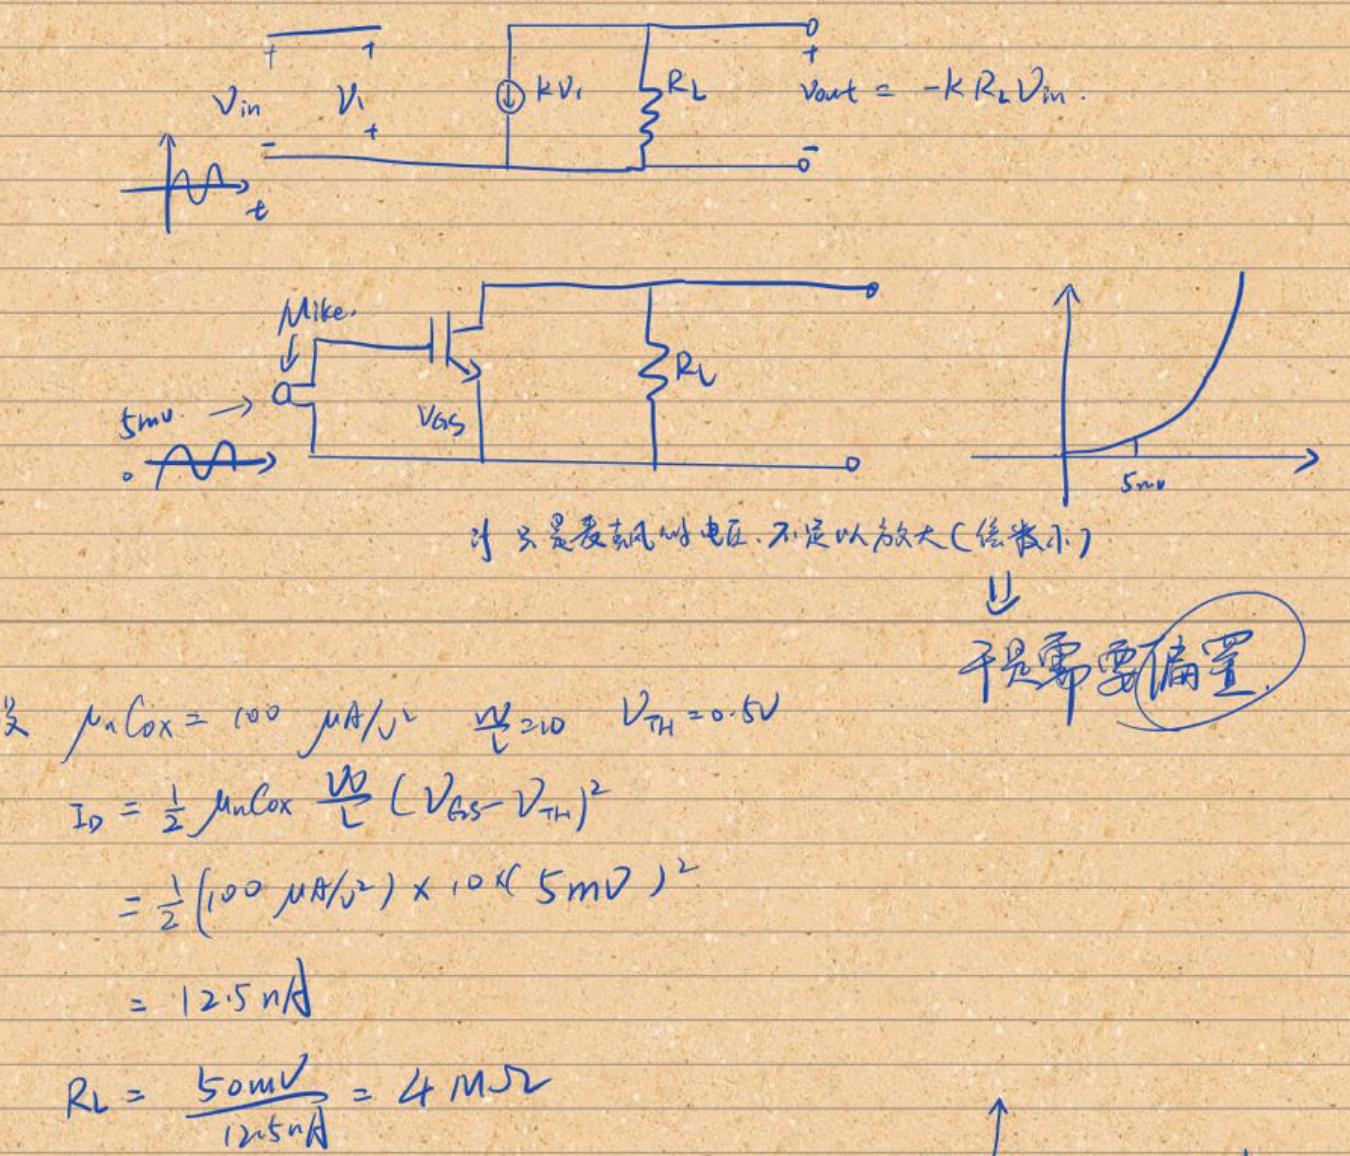 + +
Vin V₁ kV₁ RL + Vout = -K RL Vin.
- + -
t
Mike.
5mv. VGS RL
0 5mv
只是麦克风的电压.不足以放大(倍数小)
⇓
于是需要偏置.
设 μnCox = 100 μA/V² W/L=10 VTH=0.5V
ID = 1/2 μnCox W/L (VGS-VTH)²
= 1/2 (100 μA/V²) × 10 × ( 5mV )²
= 12.5 nA
RL = 50mV/12.5nA = 4 MΩ